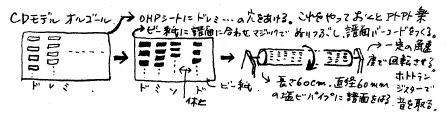 CDモデル オルゴール
OHPシートにドレミ…の穴をあける。これをやっておくとアトアト楽
ビニール紙に譜面に合わせマジックでぬりつぶし、譜面バーコードをつくる。
一定の風速
度で回転させる。
ホトトラン
ジスターで
音を取る。
ド レ ミ
ド ミ ソ ド
休止
ビニール紙
長さ60cm、直径60mm
の塩ビパイプに譜面をはる。